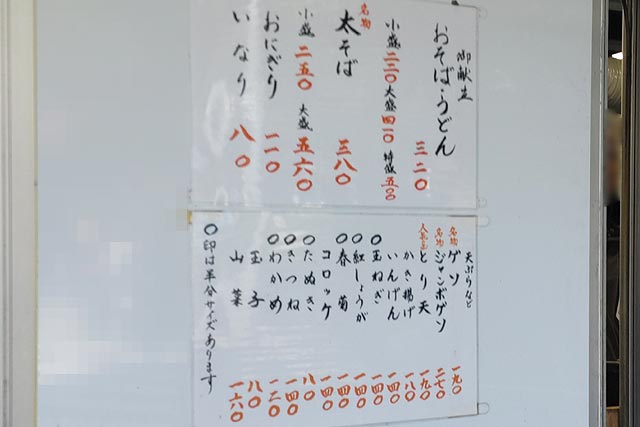 御献立
おそば・うどん 三二〇
小盛二二〇 大盛四一〇 特盛五〇〇
名物
太そば 三八〇
小盛 二五〇 大盛 五六〇
おにぎり 一一〇
いなり 八〇
天ぷらなど
名物 ゲソ 一九〇
名物 ジャンボゲソ 二七〇
とり天 一九〇
かき揚げ 一八〇
いんげん 一四〇
〇玉ねぎ 一四〇
〇紅しょうが 一四〇
〇春菊 一四〇
コロッケ 一四〇
〇たぬき 八〇
〇きつね 一四〇
〇わかめ 一二〇
玉子 八〇
山菜 一六〇
〇印は半分サイズあります